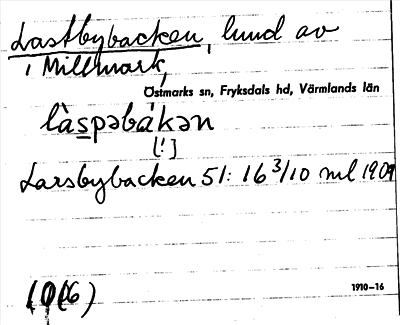 Lastbybacken, lund av
i Millmark,
Östmarks sn, Fryksdals hd, Värmlands län
làspəbákən
[!]
Larsbybacken 51: 16 3/10 ml 1909
1910-16